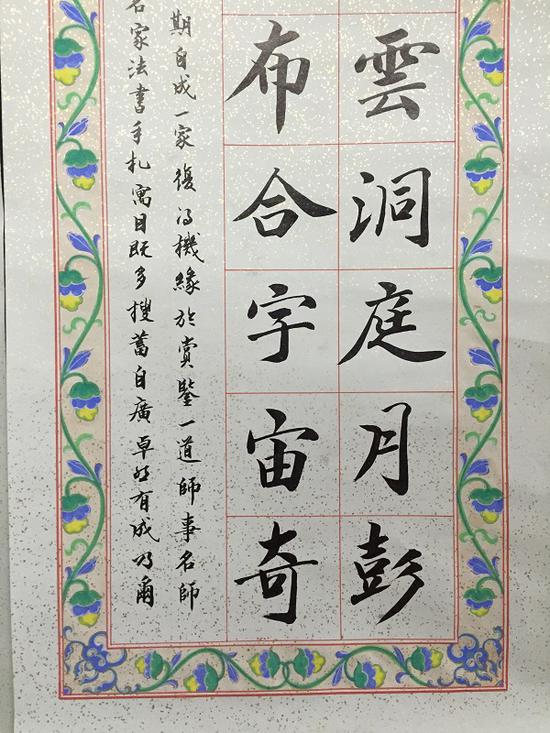 雲洞庭月彭
布合字宙奇
期自成一家復得機緣於賞鑒一道師事名師
名家法書手札寓目既多搜蓄自廣卓然有成乃爾